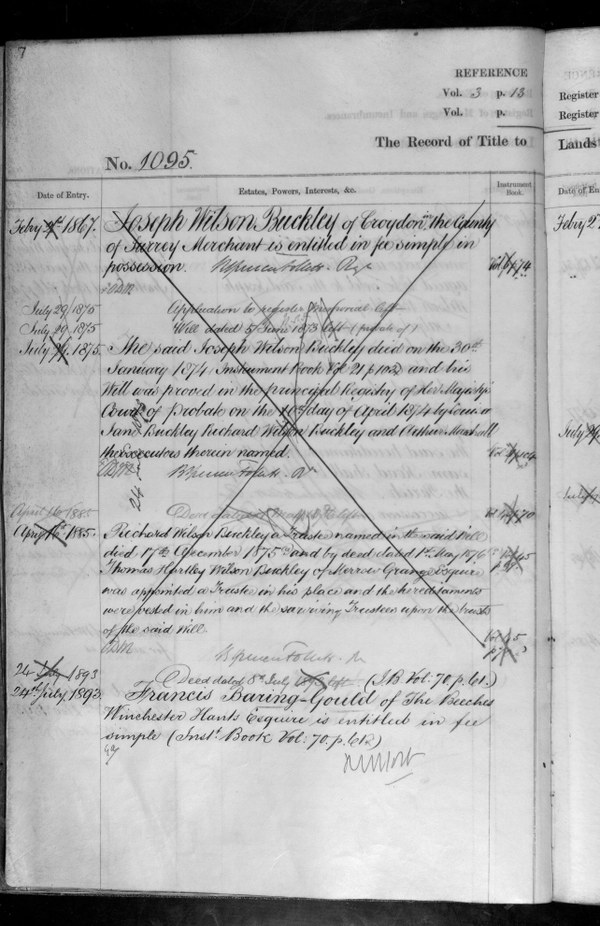 7
REFERENCE
Vol. 3 p. 13
Vol. p.
Register
Register
The Record of Title to
Lands
No. 1095.
Date of Entry.
Estates, Powers, Interests, &c.
Instrument Book.
Date of En
Feby 1867.
Joseph Wilson Buckley of Croydon in the County
Feby 2
of Surrey Merchant is entitled in fee simply in
possession.
74
July 29/1875
Application to register left
July 29/1875
Will dated 5 June 1873 left
July 1875.
The said Joseph Wilson Buckley died on the 30th
January 1874 Instrument Book Vol 21 p 102 and his
Will was proved in the principal Registry of Her Majesty's
Court of Probate on the 10th day of April 1874 by Louisa
Jane Buckley Richard Wilson Buckley and Arthur Marshall
the Executors therein named.
July
April 16 1885
70
April 16th 1885.
Richard Wilson Buckley a Trustee named in the said Will
died 17th December 1875 and by deed dated 1st May 1876
Thomas Hartley Wilson Buckley of Merrow Grange Esquire
was appointed a Trustee in his place and the hereditaments
were vested in him and the surviving Trustees upon the trusts
of the said Will.
24 July 1893
Deed dated 8th July 1893 left (I.B. Vol. 70. p. 61.)
24th July, 1893
Francis Baring-Gould of The Beeches
Winchester Hants Esquire is entitled in fee
simple (Inst. Book Vol: 70. p. 61.)